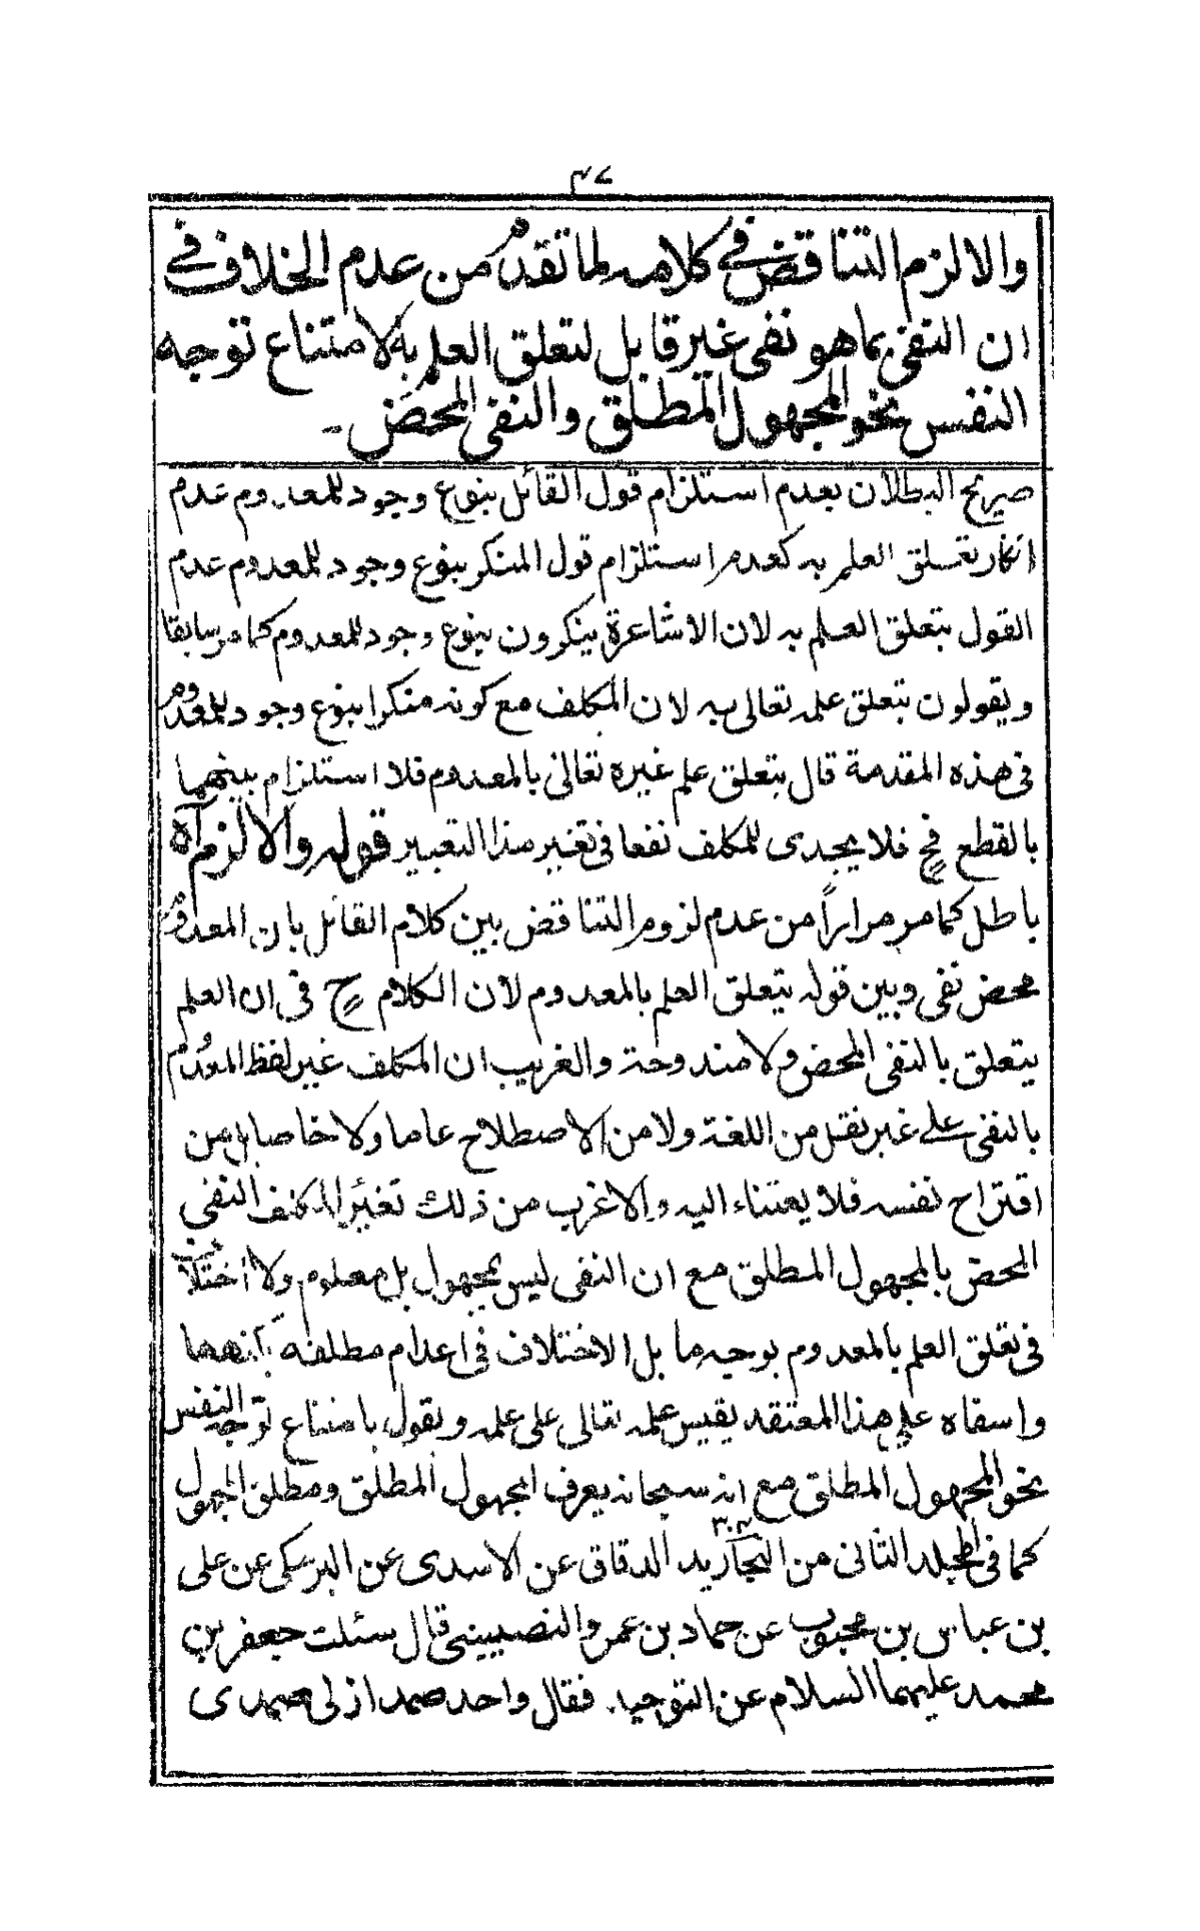 ٤٧
والا لزم التناقض في كلامه لما تقدم من عدم الخلاف في
ان النفى بما هو نفى غير قابل لتعلق العلم به لامتناع توجه
النفس نحو المجهول المطلق والنفى المحض ـ
صريح البطلان بعدم استلزام قول القائل بنوع وجود للمعدوم عدم
انكار تعلق العلم به كعدم استلزام قول المنكر بنوع وجود للمعدوم عدم
القول بتعلق العلم به لان الاشاعرة ينكرون بنوع وجود للمعدوم كما مر سابقا
ويقولون بتعلق علمه تعالى به لان المكلف مع كونه منكرا بنوع وجود للمعدوم
فى هذه المقدمة قال بتعلق علم غيره تعالى بالمعدوم فلا استلزام بينهما
بالقطع فح فلا يجدى للمكلف نفعا فى تغير هذا التعبير قوله والا لزم آه
باطل كما مر مراراً من عدم لزوم التناقض بين كلام القائل بان المعدوم
محض نفى وبين قوله يتعلق العلم بالمعدوم لان الكلام ح فى ان العلم
يتعلق بالنفى المحض ولا مندوحة والغريب ان المكلف غير لفظ المعدوم
بالنفى على غير نقل من اللغة ولا من الاصطلاح عاما ولا خاصا بل من
اقتراح نفسه فلا يعتناء اليه والاغرب من ذلك تغير المكلف النفى
المحض بالمجهول المطلق مع ان النفى ليس بمجهول بل معلوم ولا اختلاف
فى تعلق العلم بالمعدوم بوجه ما بل الاختلاف فى اعدام مطلقه
واسفاه على هذا المعتقد يقيس علمه تعالى على علمه ويقول بامتناع توجه النفس
نحو المجهول المطلق مع انه سبحانه يعرف المجهول المطلق ومطلق المجهول
كما فى المجلد الثانى من البحار يد الدقاق عن الاسدى عن البرمكى عن على
بن عباس بن محبوب عن حماد بن عمرو النصيبينى قال سئلت جعفر بن
محمد عليهما السلام عن التوحيد فقال واحد صمد ازلى صمدى